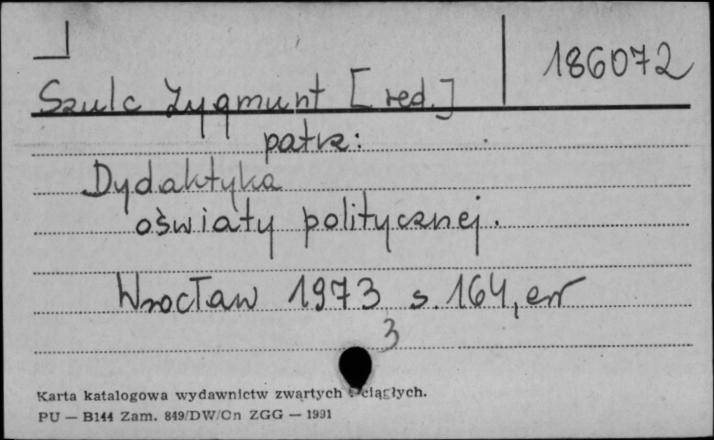 186072
Szulc Zygmunt [red.]
patrz:
Dydaktyka
oświaty politycznej.
Wrocław 1973 s. 164, err
3
Karta katalogowa wydawnictw zwartych ciągłych.
PU — B144 Zam. 849/DW/Cn ZGG — 1991